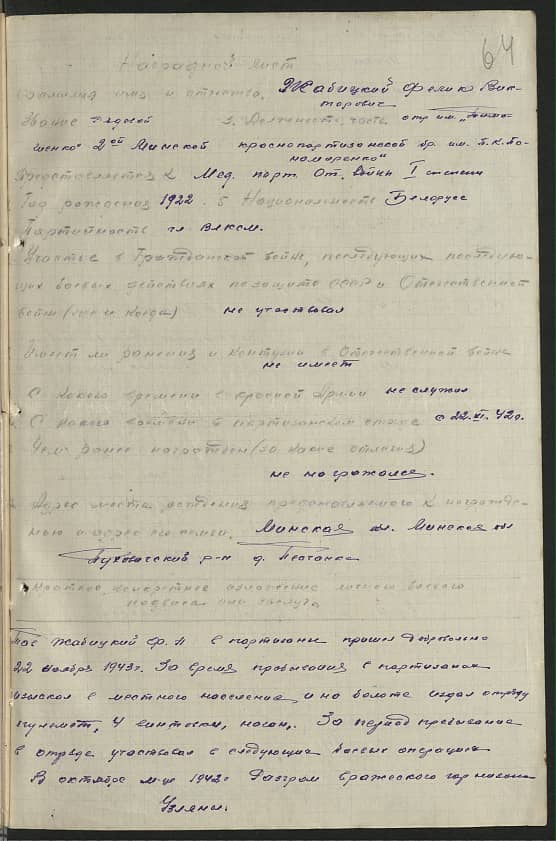 64
Наградной лист
Фамилия имя и отчество. Жабицкий Феликс Вик-
торович
Звание рядовой 3. Должность, часть отр им. „Тимо-
шенко" 2ой Минской краснопартизанской бр. им. П.К. По-
номаренко"
Представляется к Мед. парт. От. войны I степени
Год рождения 1922. 5 Национальность Белорусс
Партийность чл ВЛКСМ.
Участие в Гражданской войне, последующих последую-
щих боевых действиях по защите СССР и Отечественной
войне (где и когда) не участвовал
Имеет ли ранения и контузии в Отечественной войне
не имеет
С какого времени в красной Армии не служил
С какого времени в партизанском отряде с 22.XI.42г.
Чем ранее награжден (за какие отличия)
не награжался.
Адрес места представляемого к награжде-
нию и адрес его семьи. Минская обл. Минская обл
Пуховичский р-н д.
Краткое, конкретное изложение личного боевого
подвига или заслуг.
Тов Жабицкий Ф. в партизаны пришел добровольно
22 ноября 1943г. За время пребывания в партизанах
изыскал с местного населения и на болоте отряду
пулемет, 4 винтовки, наган,. За период пребывание
в отряде участвовал в следующих боевых операциях
В октябре м-це 1942г Разгром вражеского гарнизона
Узляны.